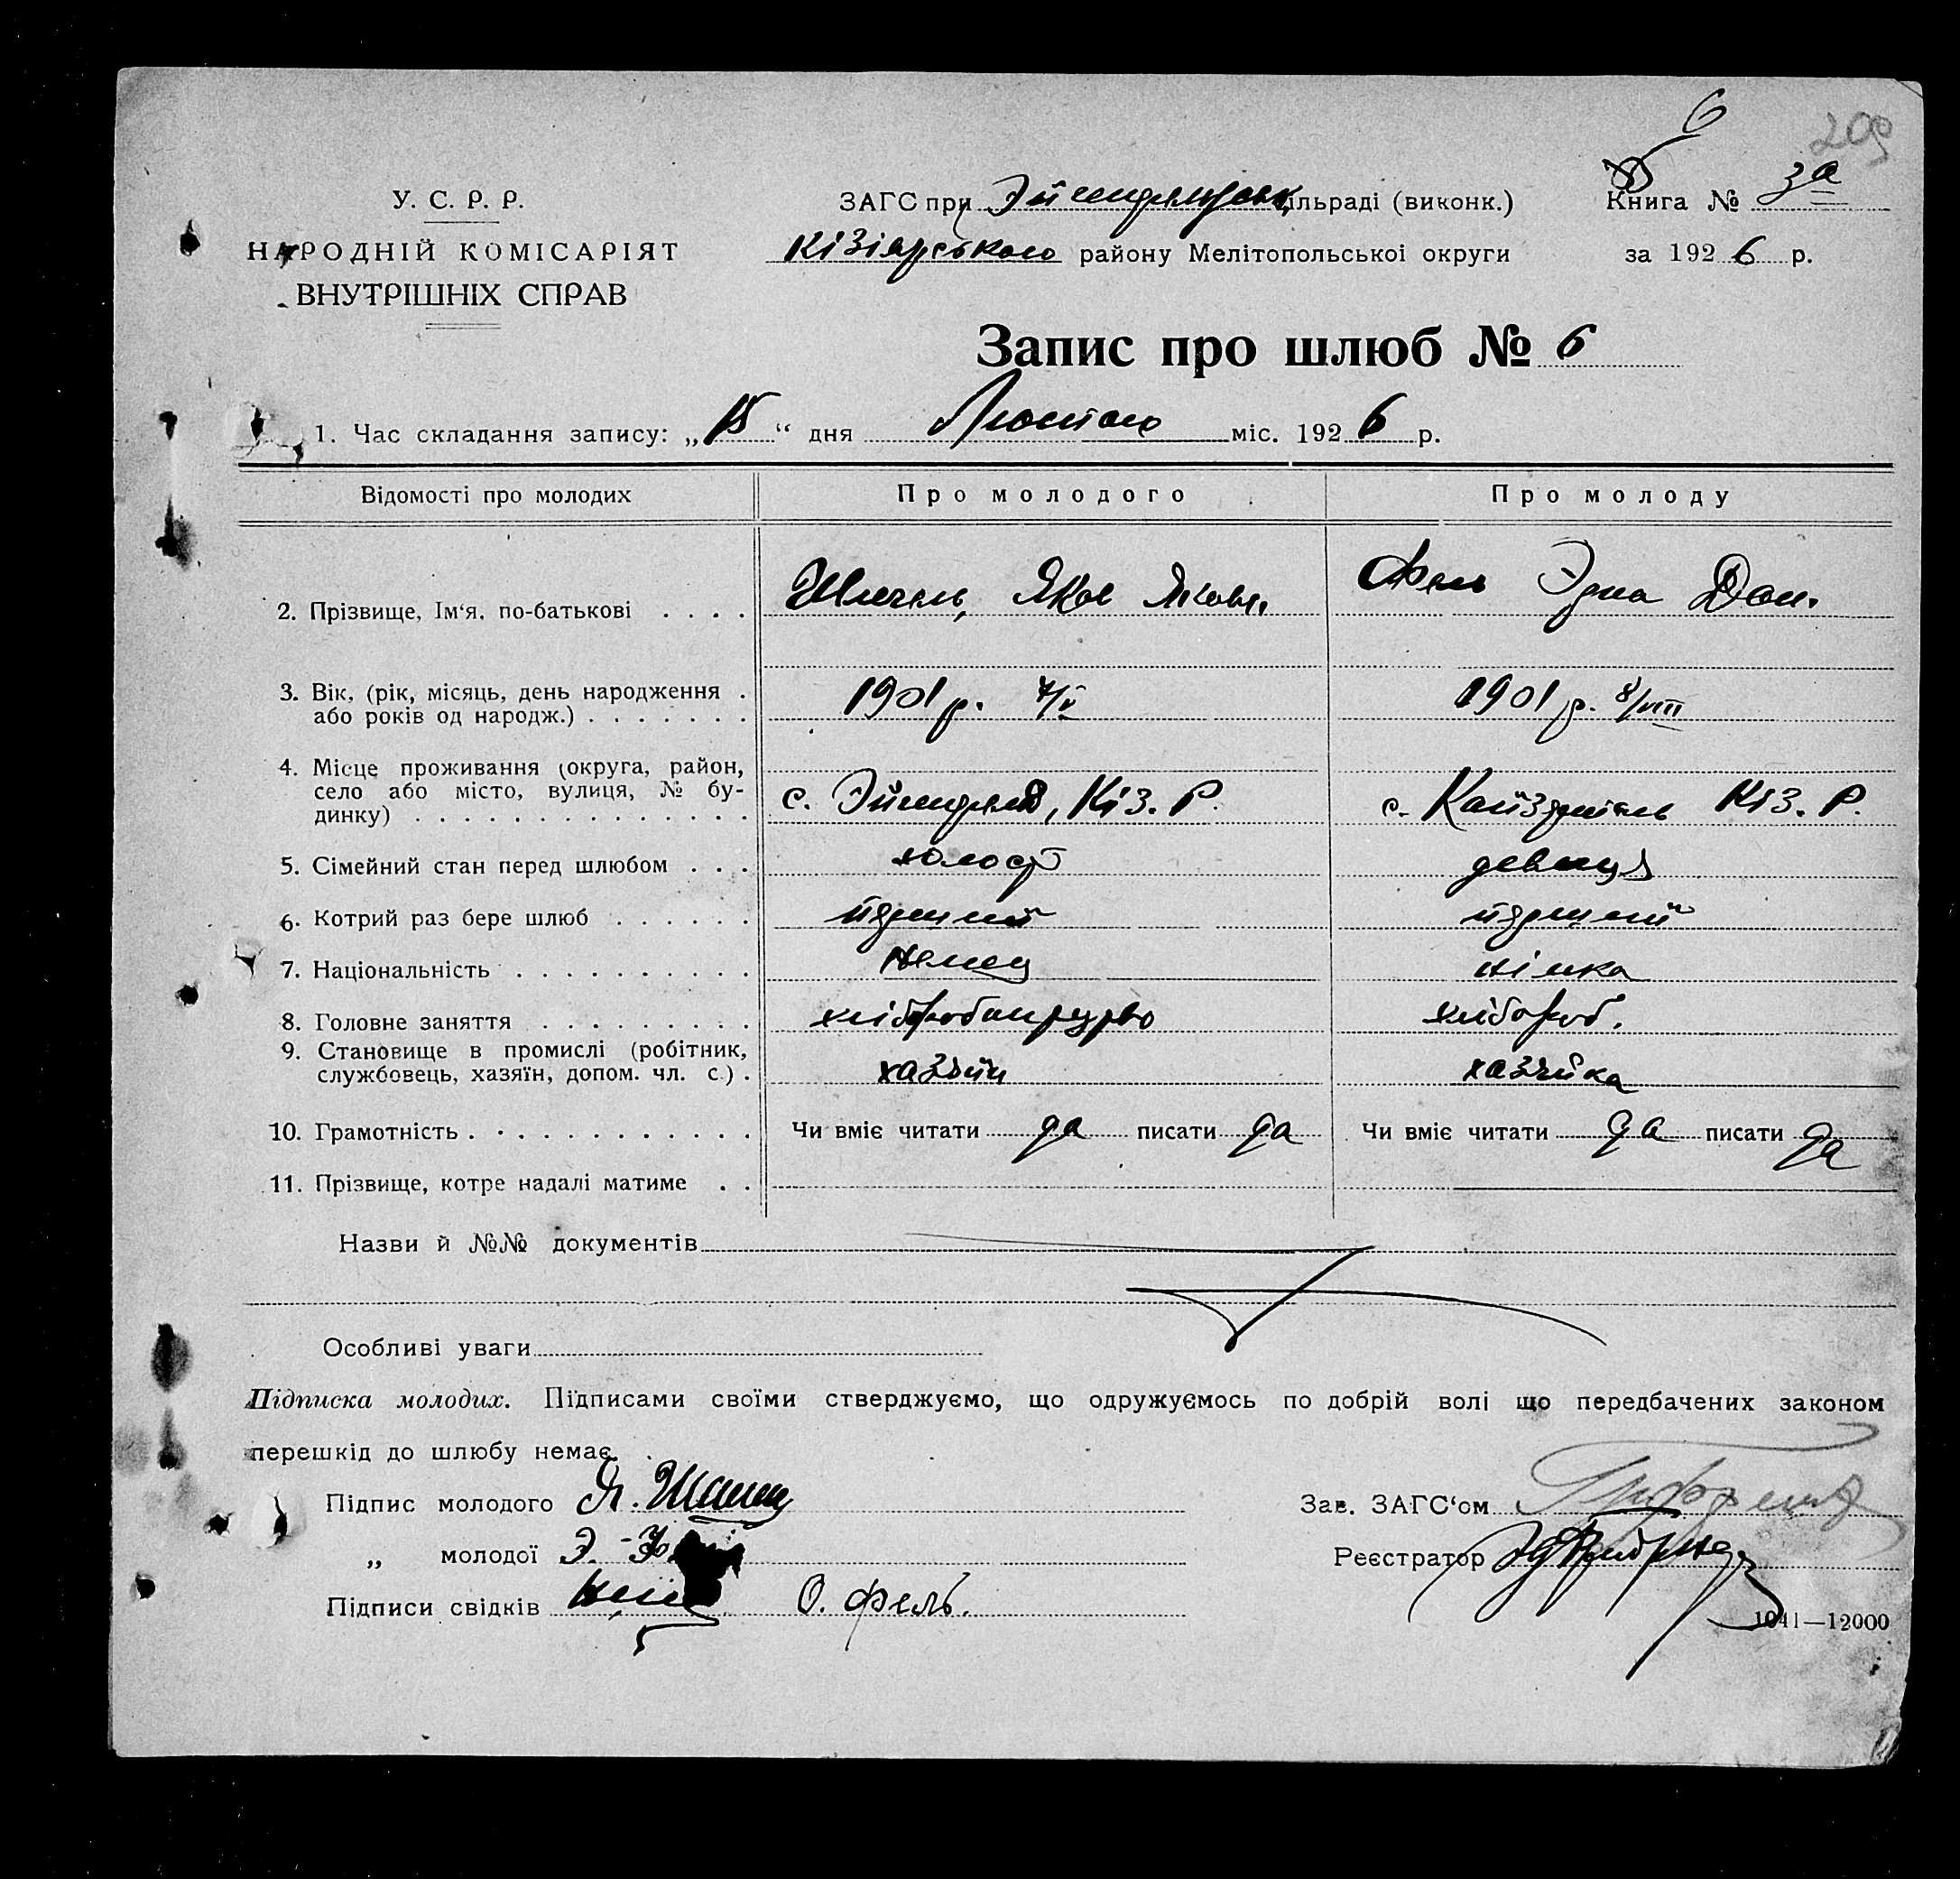 6
209
У. С. Р. Р.
НАРОДНІЙ КОМІСАРІЯТ
ВНУТРІШНІХ СПРАВ
ЗАГС при сільраді (виконк.)
Кізіярського району Мелітопольської округи
Книга № 3а
за 1926 р.
Запис про шлюб № 6
1. Час складання запису: „15“ дня Лютого міс. 1926 р.
Відомості про молодих Про молодого Про молоду
2. Прізвище, Ім'я, по-батькові Яков Яковл. Фель Эдна Дан.
3. Вік, (рік, місяць, день народження 1901 р. 7/V 1901 р. 8/VIII
або років од народж.)
4. Місце проживання (округа, район,
село або місто, вулиця, № бу- с. Кіз. Р. с. Кайзерталь Кіз. Р.
динку)
5. Сімейний стан перед шлюбом холост девиця
6. Котрий раз бере шлюб перший перший
7. Національність немец німка
8. Головне заняття хлібороб.
9. Становище в промислі (робітник,
службовець, хазяїн, допом. чл. с.) хазяин хазяйка
10. Грамотність Чи вміє читати да писати да Чи вміє читати да писати да
11. Прізвище, котре надалі матиме
Назви й №№ документів
Особливі уваги
Підписка молодих. Підписами своїми стверджуємо, що одружуємось по добрій волі що передбачених законом
перешкід до шлюбу немає.
Підпис молодого Я.
Зав. ЗАГС'ом
„ молодої Э.
Реєстратор
Підписи свідків О. Фель.
1041—12000